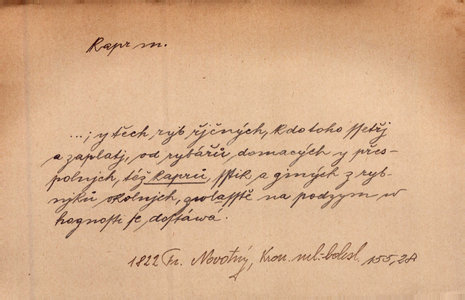 Kapr m.
...; y těch ryb řjčných, kdo toho ssetřj
a zaplatj, od rybářů domacých y přes-
polných, též kaprů, sstik a giných z ryb-
nýků okolných, zwlasstě na podzym w
hognosti se dostáwá.
1822 Fr. Novotný, Kron. ml.-bolesl. 155, 28